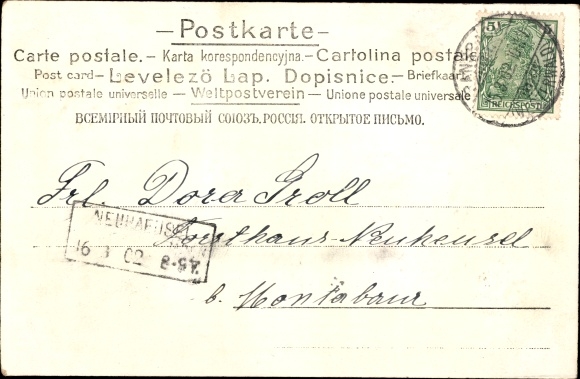 Postkarte
Carte postale. – Karta korespondencyjna. – Cartolina postale
Post card – Levelezö Lap. Dopisnice. – Briefkaart
Union postale universelle – Weltpostverein – Unione postale universale
ВСЕМІРНЫЙ ПОЧТОВЫЙ СОЮЗЪ. РОССІЯ. ОТКРЫТОЕ ПИСЬМО.
5
REICHSPOST
Frl. Dora Groll
Forsthaus-Neuheusel
b. Montabaur
16 3 02 8-9V.